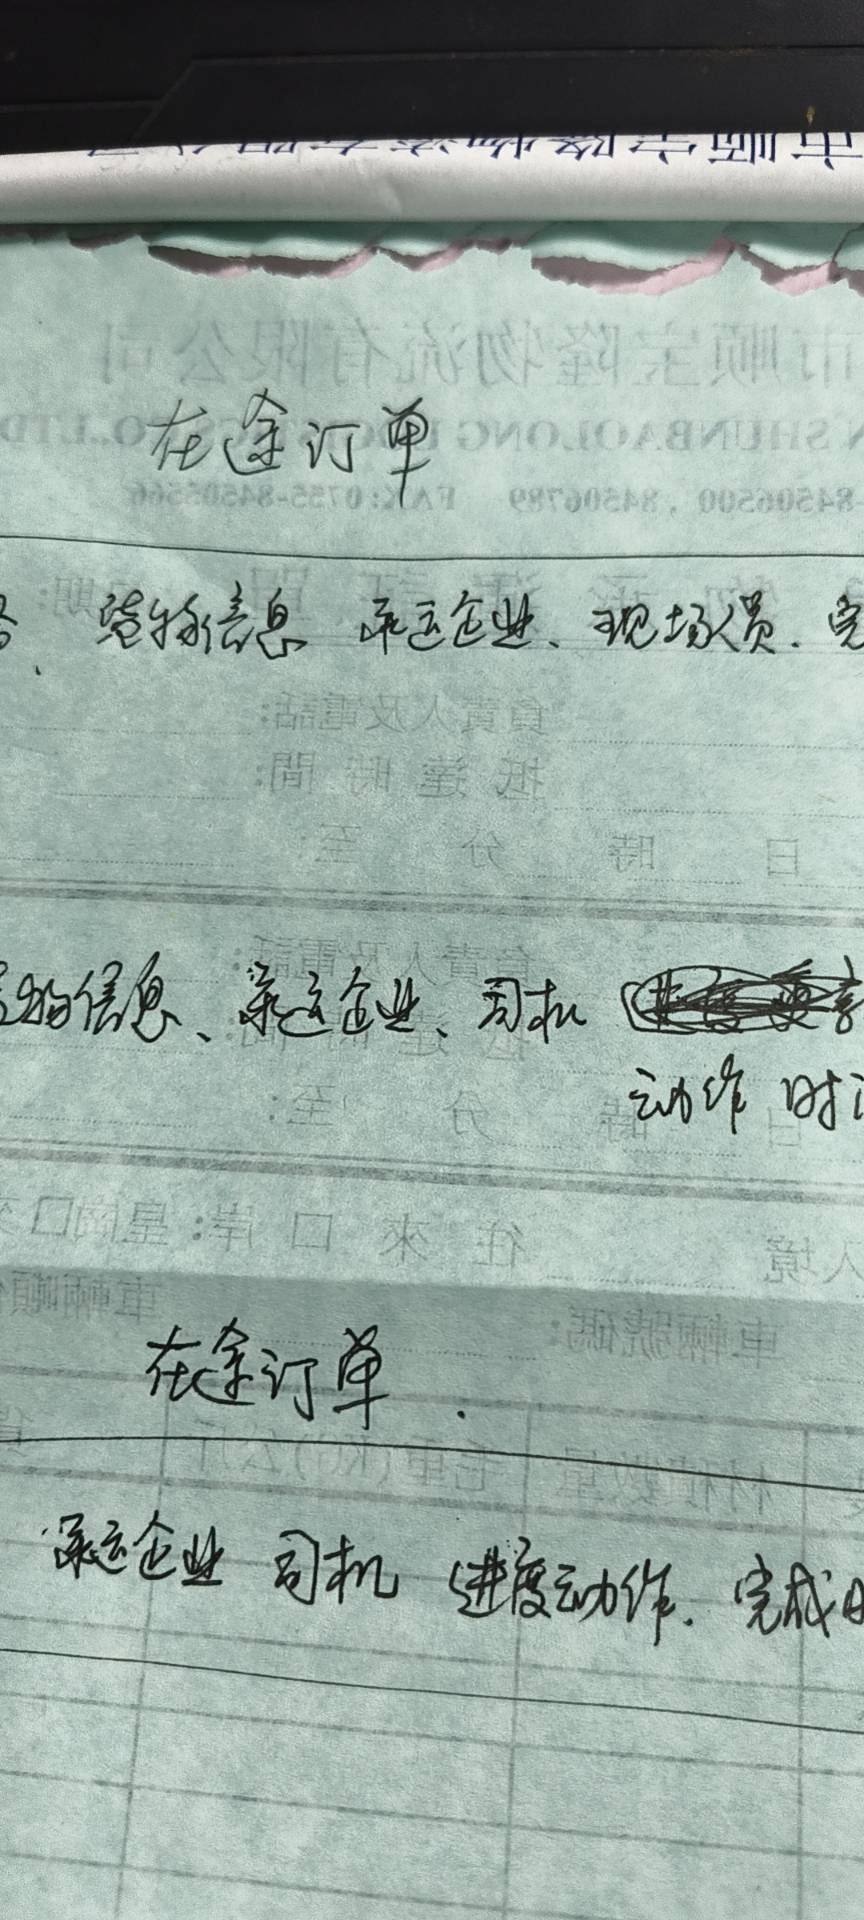 市顺宝隆物流有限公司
市顺宝隆物流有限公司
N SHUNBAOLONG LOGISTICS CO.,LTD
84506500，84506789 FAX:0755-84505566
在途订单
货物信息 承运企业、现场人员.完
期:
負責人及電話:
抵達時間:
日 時 分 至:
物信息、承运企业、司机
負責人及電話:
抵達時間:
动作 时
日 時 分 至:
入境 往來口岸:皇崗口
車輛號碼:
在途订单.
材積數量 毛重(KG)公斤
承运企业 司机 进度动作.完成